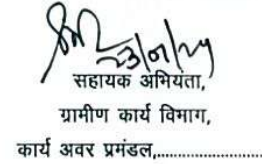 23/01/24
सहायक अभियंता,
ग्रामीण कार्य विभाग,
कार्य अवर प्रमंडल,........................